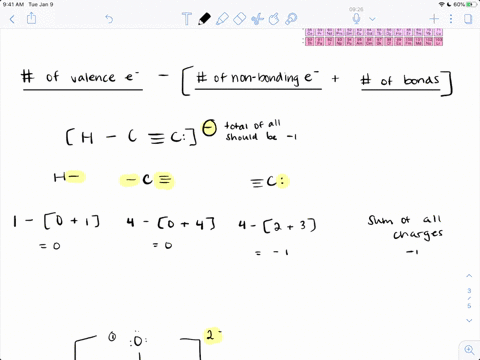 9:41 AM Tue Jan 9
09:26
60%
# of valence e⁻ − [ # of non-bonding e⁻ + # of bonds ]
[ H − C ≡ C: ]⁻ total of all
should be -1
H − − C ≡ ≡ C :
1 − [0 + 1] 4 − [0 + 4] 4 − [2 + 3] sum of all
charges
= 0 = 0 = -1 -1
:Ö: 2-
3
/
5